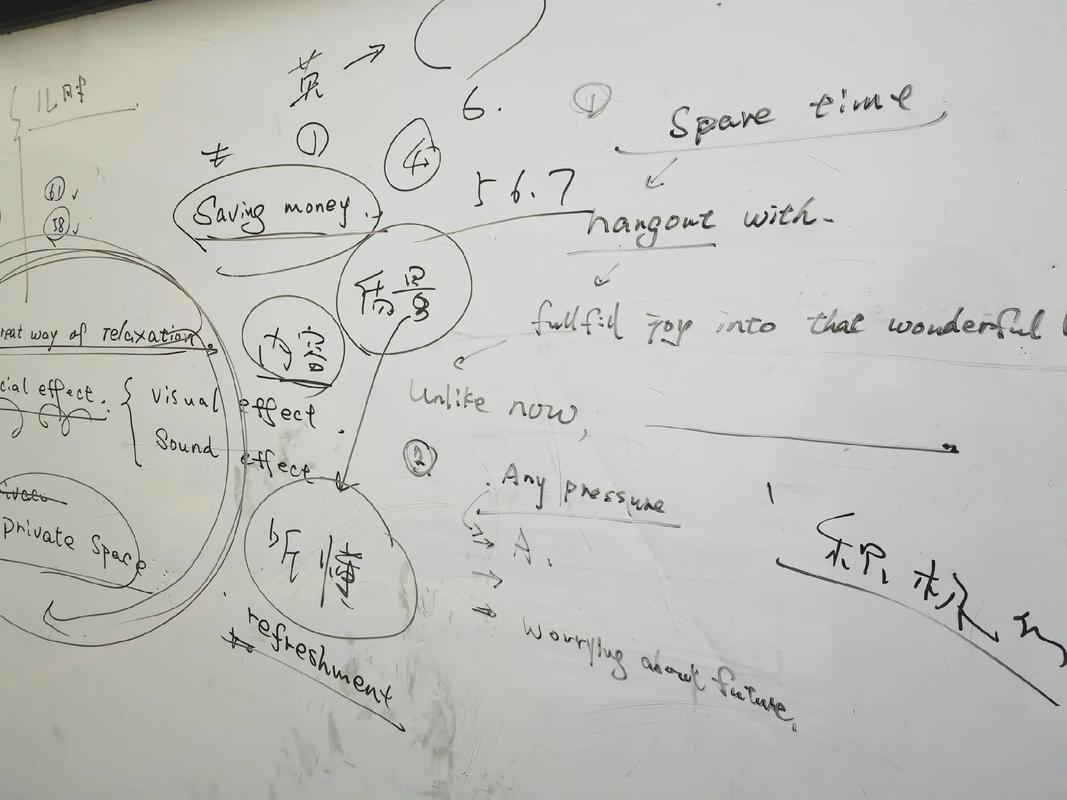 儿时
61
58
reat way of relaxation.
cial effect.
visual effect.
Sound effect
private Space
英 →
6.
①
Saving money.
5 6.7
内容
refreshment
① Spare time
hangout with.
fullfill joy into that wonderful
Unlike now,
②
Any pressure
A.
Worrying about future.